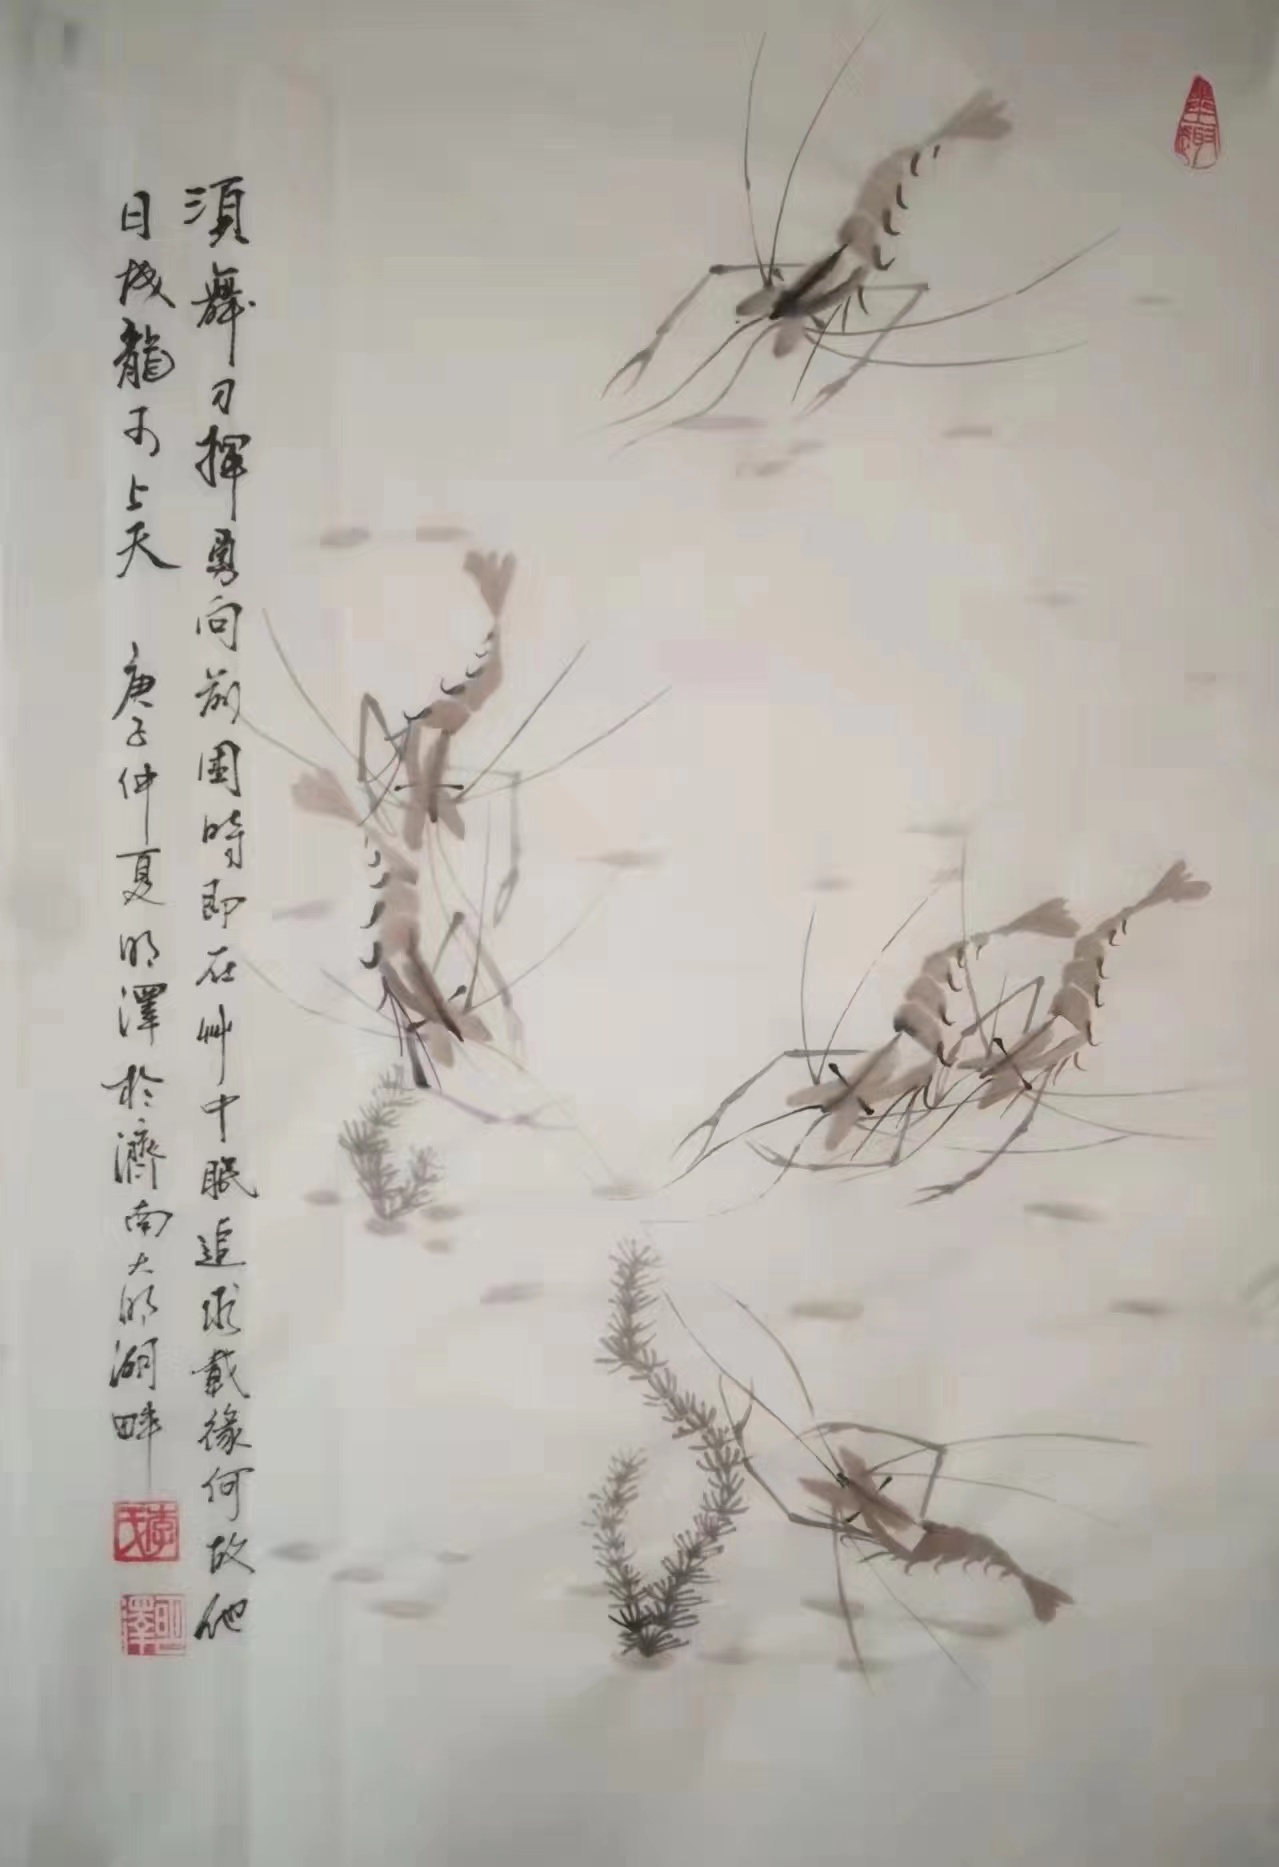 須舞刀揮勇向前困時即在艸中眠追求戴緣何故他
日成龍可上天 庚子仲夏明澤於濟南大明湖畔
李氏
明澤